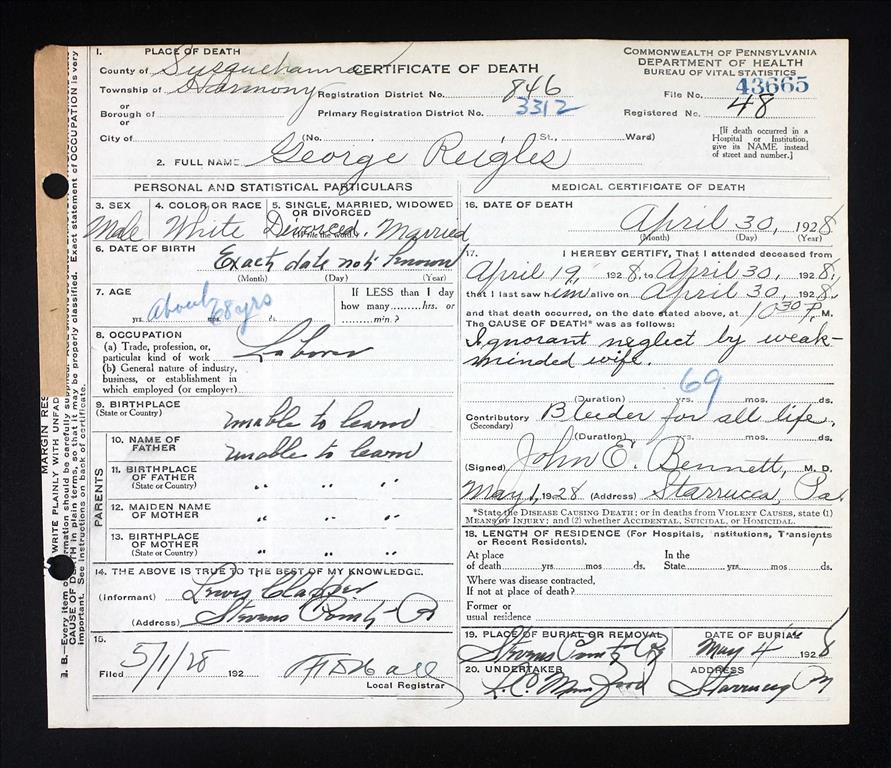 1. PLACE OF DEATH
County of Susquehanna
CERTIFICATE OF DEATH
COMMONWEALTH OF PENNSYLVANIA
DEPARTMENT OF HEALTH
BUREAU OF VITAL STATISTICS
Township of Harmony
Registration District No. 846
File No. 43665
or
Borough of
Primary Registration District No. 3312
Registered No. 48
or
City of (No. St., Ward)
[If death occurred in a Hospital or Institution, give its NAME instead of street and number.]
2. FULL NAME George Reigles
PERSONAL AND STATISTICAL PARTICULARS
3. SEX
Male
4. COLOR OR RACE
White
5. SINGLE, MARRIED, WIDOWED OR DIVORCED
(Write the word)
Divorced. Married
6. DATE OF BIRTH
Exact date not known
(Month) (Day) (Year)
7. AGE
About 68 yrs
yrs. ds.
If LESS than 1 day
how many hrs. or
min.?
8. OCCUPATION
(a) Trade, profession, or particular kind of work
Laborer
(b) General nature of industry, business, or establishment in which employed (or employer)
9. BIRTHPLACE
(State or Country)
unable to learn
PARENTS
10. NAME OF FATHER
unable to learn
11. BIRTHPLACE OF FATHER
(State or Country)
" " "
12. MAIDEN NAME OF MOTHER
" " "
13. BIRTHPLACE OF MOTHER
(State or Country)
" " "
14. THE ABOVE IS TRUE TO THE BEST OF MY KNOWLEDGE.
(Informant) Lewis
(Address) Stevens Point Pa
15.
Filed 5/1/28 192
Local Registrar
MEDICAL CERTIFICATE OF DEATH
16. DATE OF DEATH
April 30, 1928
(Month) (Day) (Year)
17. I HEREBY CERTIFY, That I attended deceased from
April 19, 1928, to April 30, 1928,
that I last saw him alive on April 30, 1928,
and that death occurred, on the date stated above, at 10 30 P. M.
The CAUSE OF DEATH* was as follows:
Ignorant neglect by weak-
minded wife.
69
(Duration) yrs. mos. ds.
Contributory Bleeder for all life.
(Secondary)
(Duration) yrs. mos. ds.
(Signed) John E. Bennett, M. D.
May 1, 1928 (Address) Starrucca, Pa.
*State the DISEASE CAUSING DEATH; or in deaths from VIOLENT CAUSES, state (1)
MEANS OF INJURY; and (2) whether ACCIDENTAL, SUICIDAL, or HOMICIDAL.
18. LENGTH OF RESIDENCE (For Hospitals, Institutions, Transients or Recent Residents).
At place of death yrs. mos. ds.
In the State yrs. mos. ds.
Where was disease contracted,
If not at place of death?
Former or
usual residence
19. PLACE OF BURIAL OR REMOVAL
Stevens Point Pa
DATE OF BURIAL
May 4 1928
20. UNDERTAKER
ADDRESS
Starrucca Pa
MARGIN RES
WRITE PLAINLY WITH UNFAD